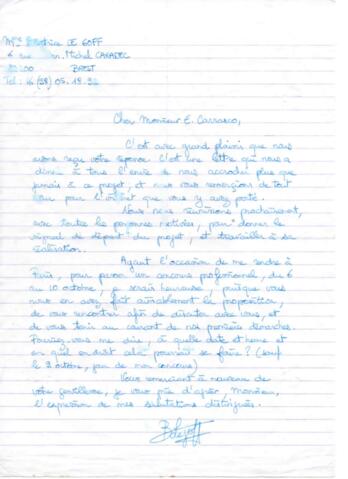 LE GOFF
6 rue Michel CARADEC
BREST
Cher Monsieur E. Carrasco,
C'est avec grand plaisir que nous
avons reçu votre réponse. C'est une lettre qui nous a
donné à tous l'envie de nous accrocher plus que
jamais à ce projet, et nous vous remercions de tout
pour l'intérêt que vous y avez porté.
Nous nous réunirons prochainement,
avec toutes les personnes motivées, pour "donner le
signal de départ" du projet, et travailler à sa
réalisation.
Ayant l'occasion de me rendre à
Paris, pour passer un concours professionnel, du 6
au 10 octobre, je serais heureuse, puisque vous
nous en avez fait aimablement la proposition,
de vous rencontrer afin de discuter avec vous, et
de vous tenir au courant de nos premières démarches.
Pouvez-vous me dire, à quelle date et heure et
en quel endroit cela pourrait se faire ? (sauf
le octobre, jour de mon concours)
Vous remerciant à nouveau de
votre gentillesse, je vous prie d'agréer, Monsieur,
l'expression de mes salutations distinguées.
BLegoff